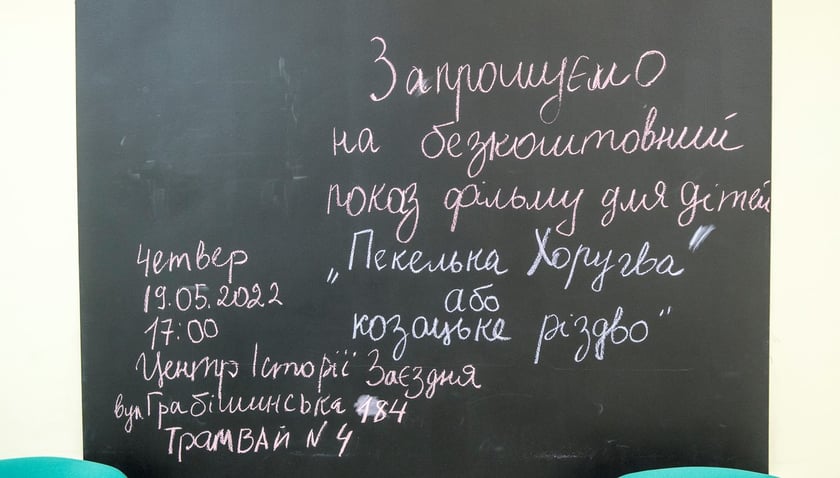 Запрошуємо
на безкоштовний
показ фільму для дітей
„Пекельна Хоругва"
або
козацьке різдво"
четвер
19.05.2022
17:00
Центр Історії Заєздня
вул Грабішинська 184
Трамвай N 4